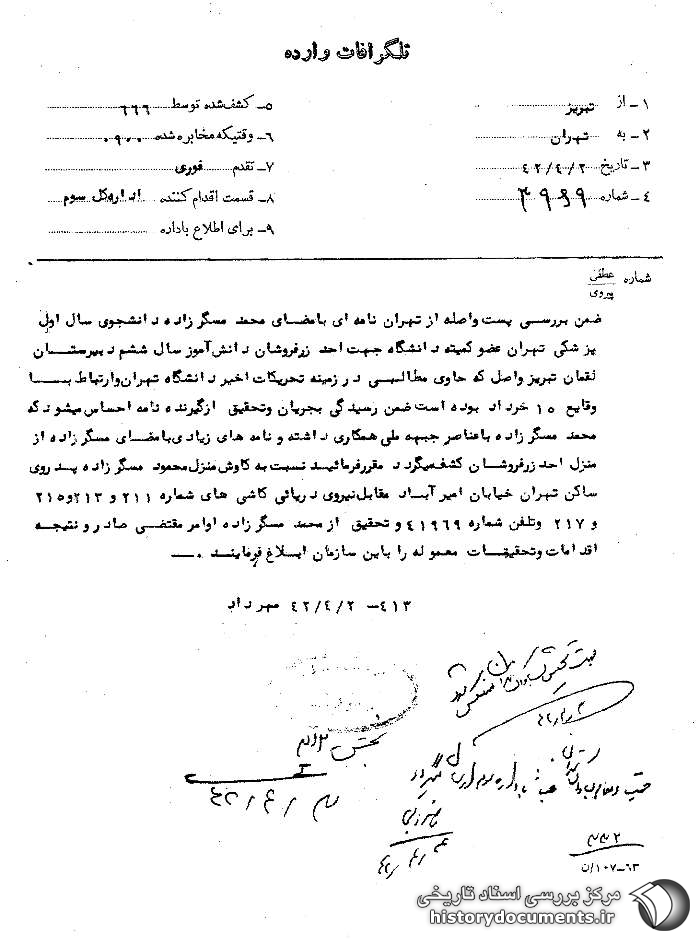 تلگرافات وارده
۱ـ از تبریز
۲ـ به تهران
۳ـ تاریخ ۴۲/۴/۲
۴ـ شماره ۴۹۶۹
۵ـ کشف‌شده توسط ۶۶۶
۶ـ وقتیکه مخابره شده ۰۹۰۰
۷ـ تقدم فوری
۸ـ قسمت اقدام کننده اداره‌کل سوم
۹ـ برای اطلاع باداره
شماره عطفی
پیروی
ضمن بررسی پست واصله از تهران نامه ای بامضای محمد مسگرزاده دانشجوی سال اول
پزشکی تهران عضو کمیته دانشگاه جهت احد زرفروشان دانش‌آموز سال ششم دبیرستان
لقمان تبریز واصل که حاوی مطالبی در زمینه تحریکات اخیر دانشگاه تهران وارتباط بـا
وقایع ۱۵ خرداد بوده است ضمن رسیدگی بجریان وتحقیق ازگیرنده نامه احساس میشود که
محمد مسگرزاده باعناصر جبهه ملی همکاری داشته و نامه های زیادی بامضای مسگرزاده از
منزل احد زرفروشان کشف میگردد مقررفرمائید نسبت به کاوش منزل محمود مسگرزاده پدر وی
ساکن تهران خیابان امیرآباد مقابل نیروی دریائی کاشی های شماره ۲۱۱ و ۲۱۳ و ۲۱۵
و ۲۱۷ وتلفن شماره ۴۱۹۶۹ و تحقیق از محمد مسگرزاده اوامر مقتضی صادر و نتیجه
اقدامات وتحقیقات معموله را باین سازمان ابلاغ فرمایند .ـــ
۴۱۳ – ۴۲/۴/۲ مهرداد
بخش
۶۳ــ۱۰۷/ن
مرکز بررسی اسناد تاریخی
historydocuments.ir